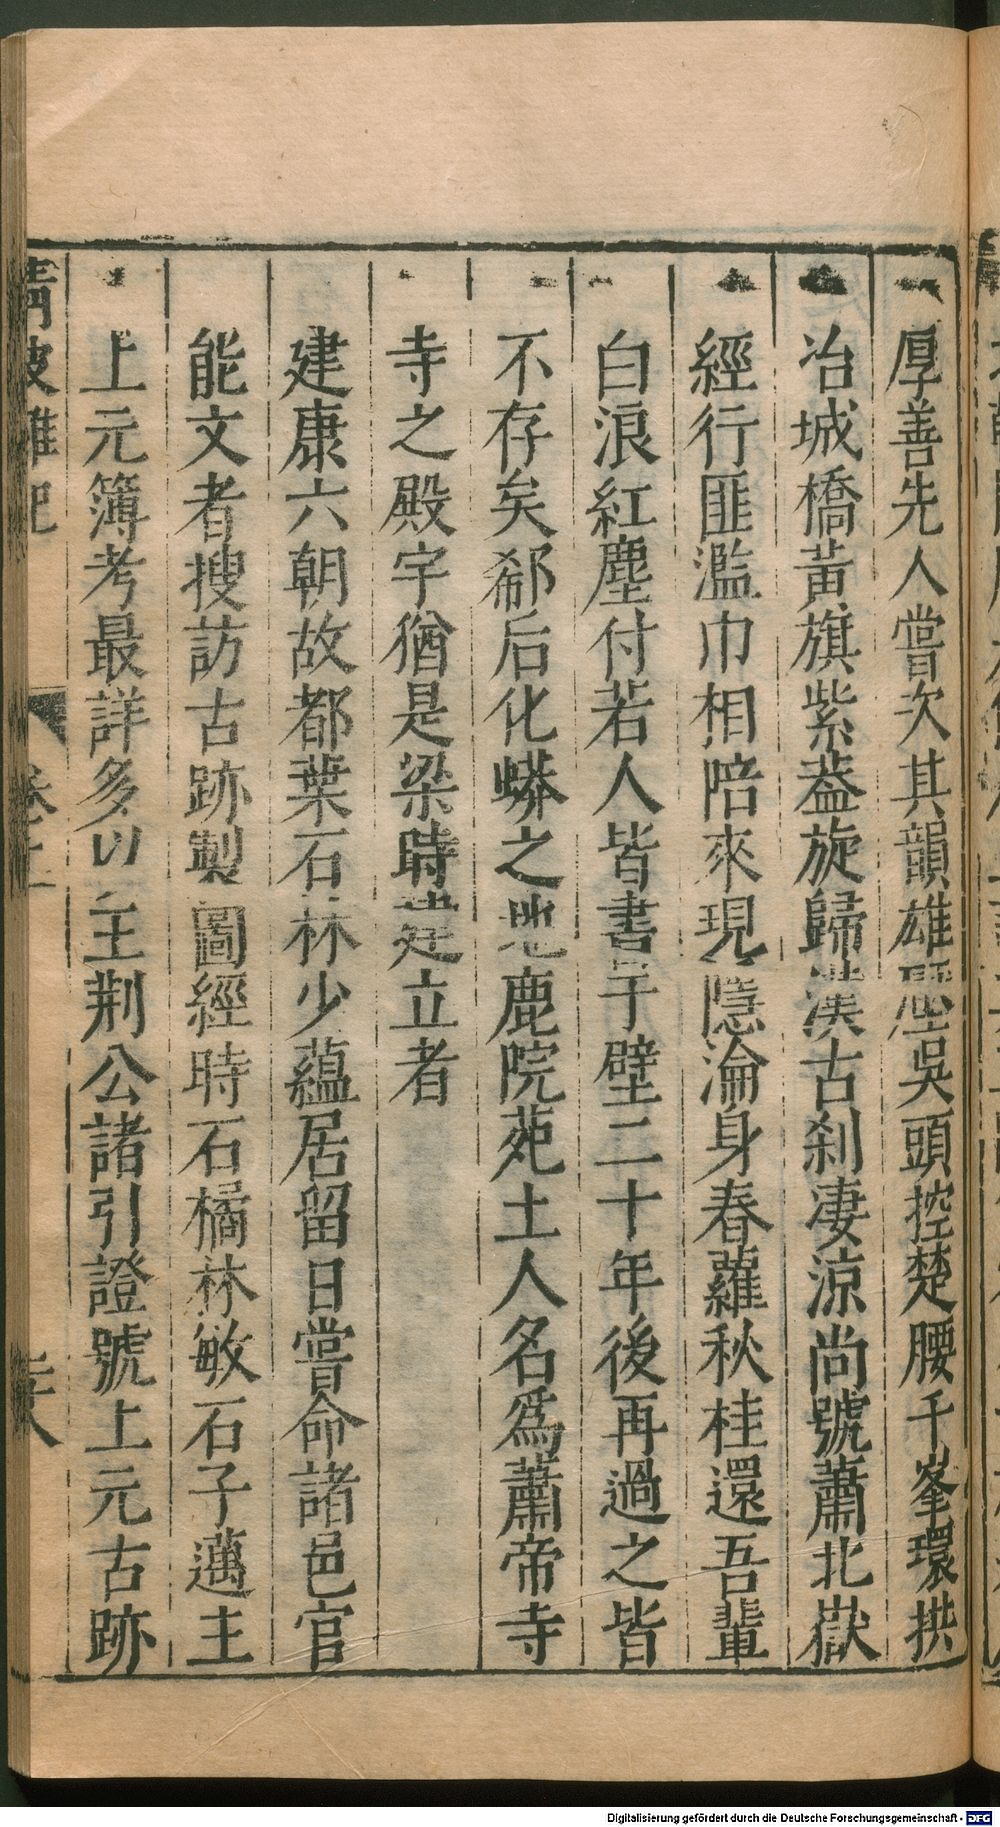 厚善先人嘗次其韻雄壓吳頭控楚腰千峯環拱
冶城橋黃旗紫葢旋歸漢古刹凄涼尚號蕭北嶽
經行匪濫巾相陪來現隱淪身春蘿秋桂還吾輩
白浪紅塵付若人皆書于壁二十年後再過之皆
不存矣郗后化蟒之地鹿院苑土人名爲蕭帝寺
寺之殿宇猶是梁時建立者
建康六朝故都葉石林少蘊居留日嘗命諸邑官
能文者搜訪古跡製圖經時石橘林敏石子邁主
上元簿考最詳多以王荆公諸引證號上元古跡
清波雜
卷十
Digitalisierung gefördert durch die Deutsche Forschungsgemeinschaft - DFG